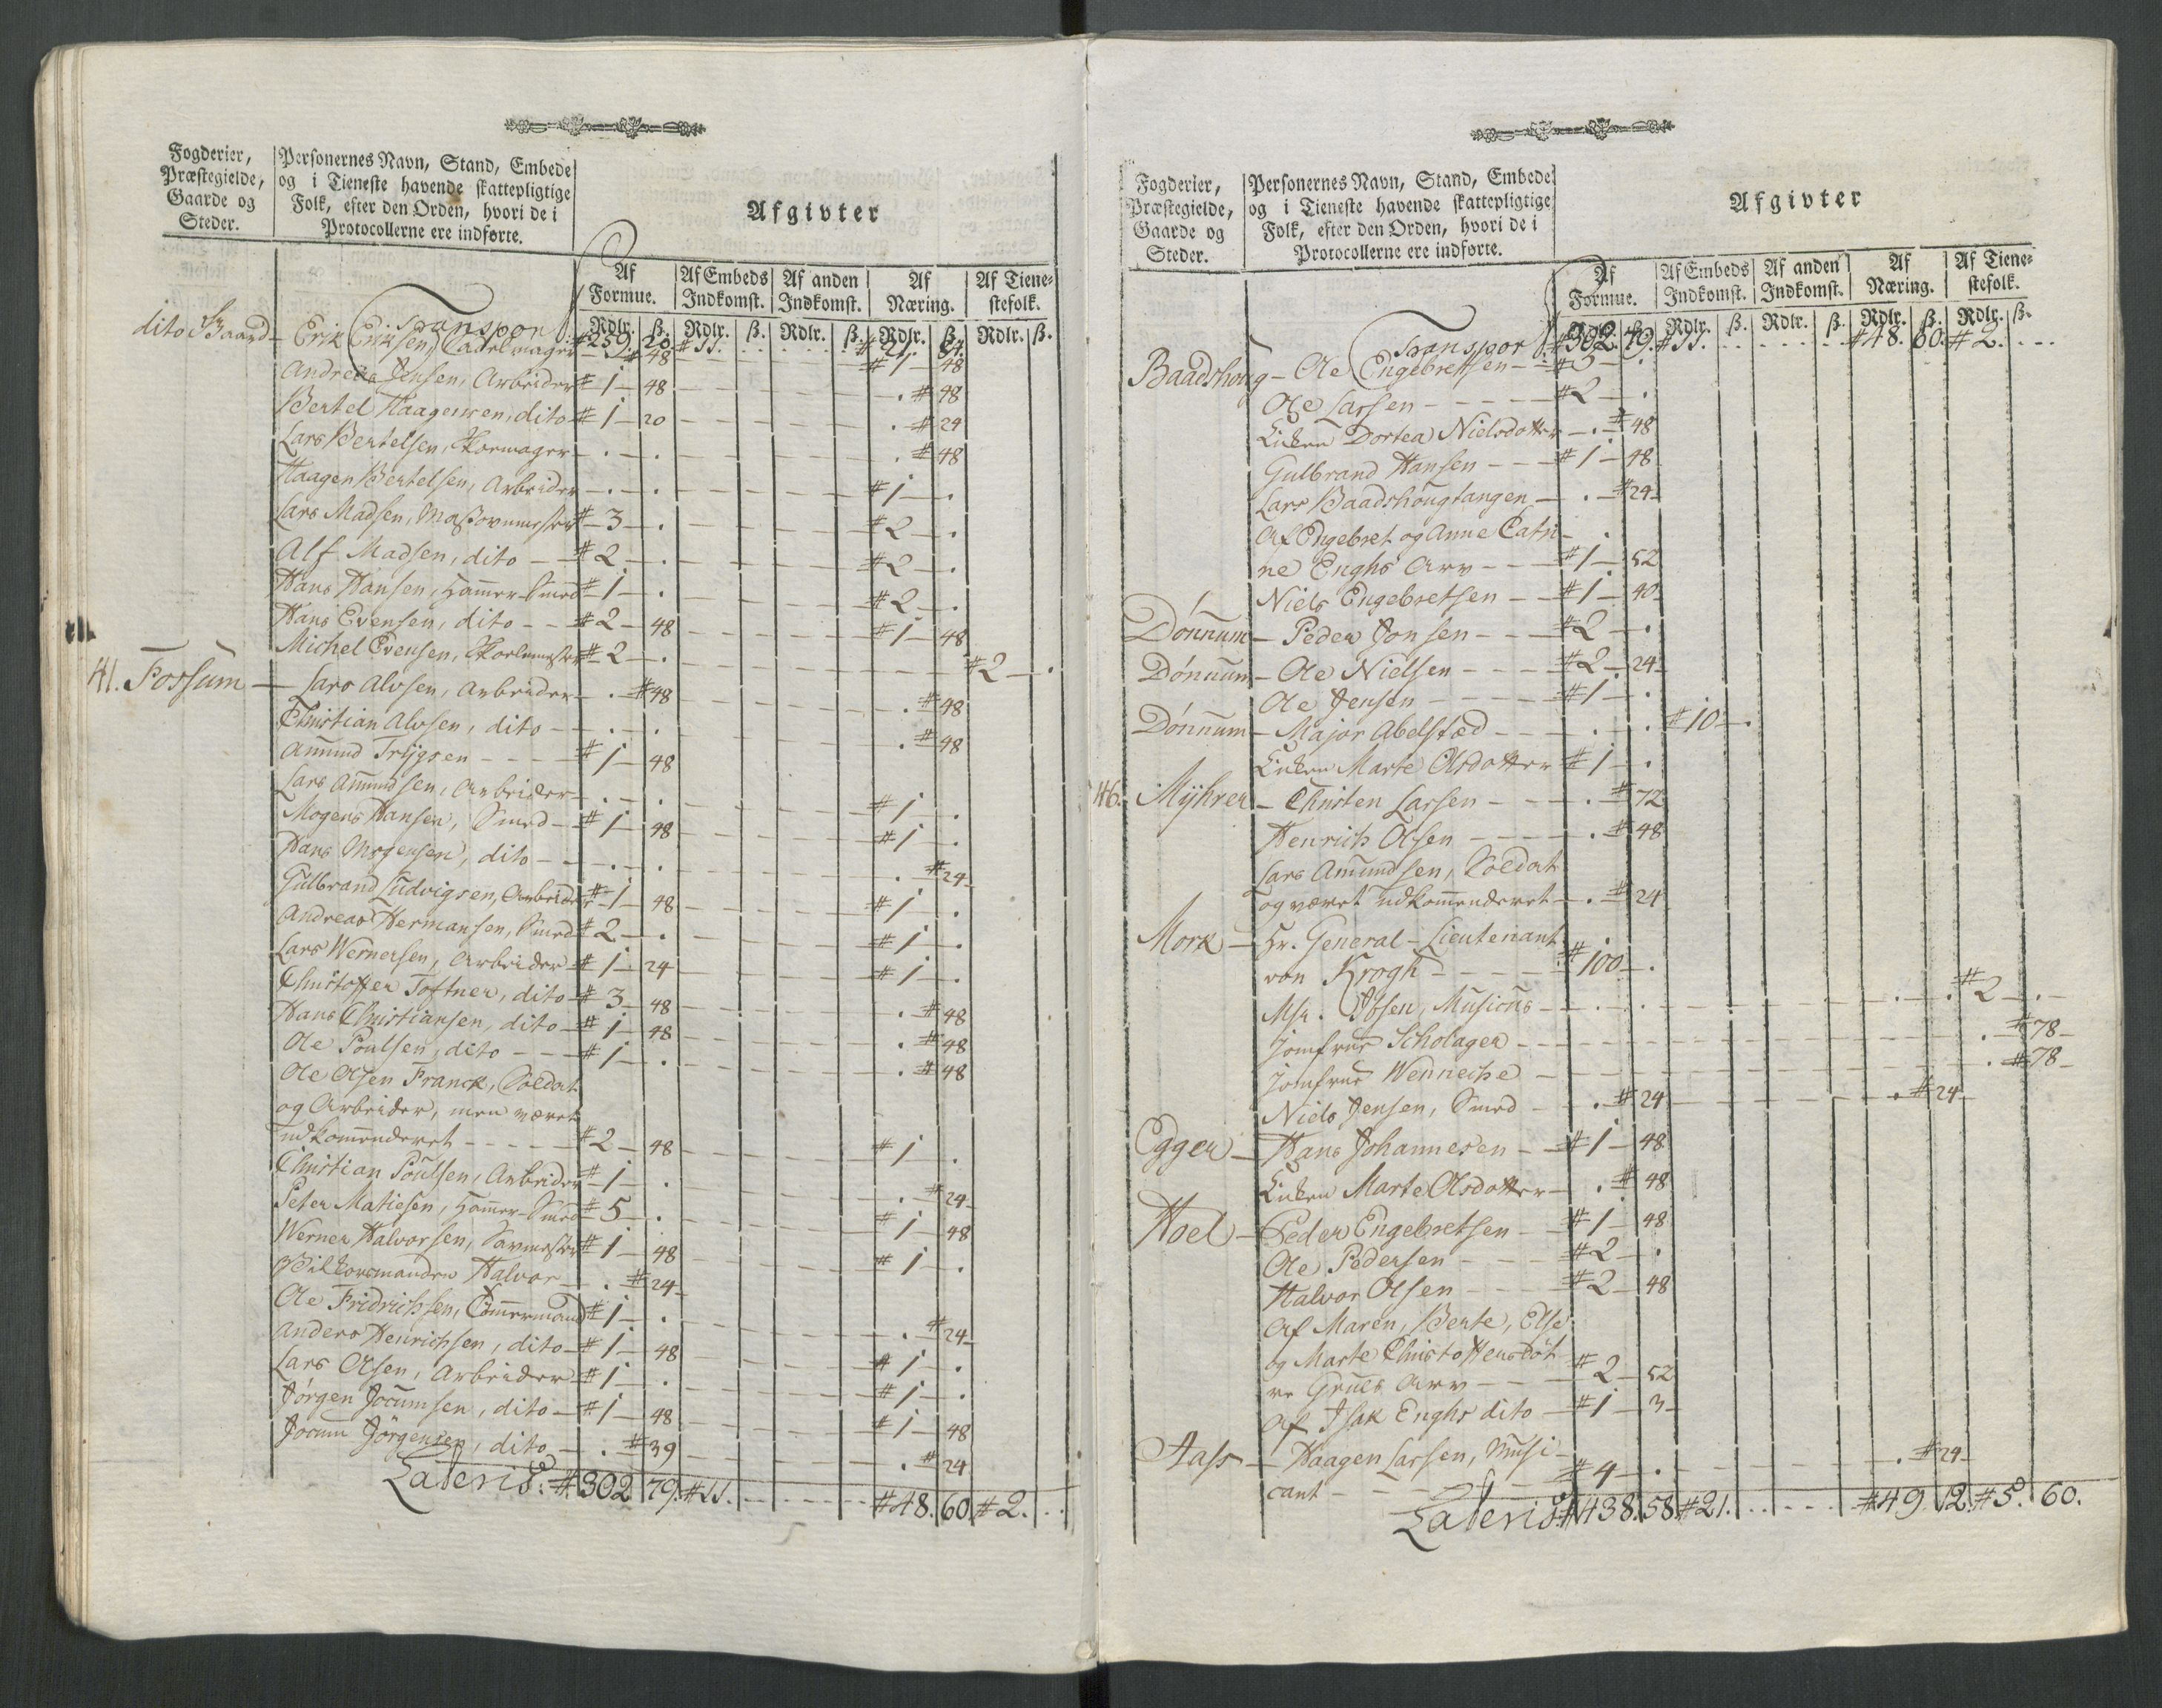 Fogderier,
Præstegielde,
Gaarde og
Steder.
Personernes Navn, Stand, Embede
og i Tieneste havende skattepligtige
Folk, efter den Orden, hvori de i
Protocollerne ere indførte.
Afgivter
Af Formue. Af Embeds Indkomst. Af anden Indkomst. Af Næring. Af Tienestefolk.
Rdlr. ß. Rdlr. ß. Rdlr. ß. Rdlr. ß. Rdlr. ß.
Transport #259. 20 #11. #21. 84.
dito Baand - Erik Eriksen, - 48 #1 - 48
Andreas Jensen, Arbeider #1 - 48 - . #48
Bertel Haagensen, dito #1 - 20 - . #24
Lars Bertelsen, Skoemager - . - . - . #48
Haagen Bertelsen, Arbeider - . - . #1 - .
Lars Madsen, Masovnmester #3 - . #2 - .
Alf Madsen, dito - #2 - . #2 - .
Hans Hansen, Hammer-Smed #1 - . #2 - .
Hans Evensen, dito - - #2 - 48 #1 - 48
Michel Evensen, #2 - . #2 - .
41. Fossum - Lars Alvsen, Arbeider - . #48 - . #48
Christian Alvsen, dito - . - . - . #48
Amund Trygsen - - - #1 - 48
Lars Amundsen, Arbeider - . - . #1 - .
Mogens Hansen, Smed - #1 - 48 #1 - .
Hans Mogensen, dito - - . - . - . #24
Gulbrand Ludvigsen, Arbeider #1 - 48 #1 - .
Andreas Hermansen, Smed #2 - . #1 - .
Lars Wernersen, Arbeider #1 - 24 #1 - .
Christoffer Toftner, dito #3 - 48 - . #48
Hans Christiansen, dito - #1 - 48 - . #48
Ole Poulsen, dito - - - #1 - . - . #48
Ole Olsen Franck, Soldat
og Arbeider, men været
udkommenderet - - - - #2 - 48 #1 - .
Christian Poulsen, Arbeider #1 - . - . #24
Peter Matiesen, Hammer-Smed #5 - . #1 - 48
Werner Halvorsen, Savmester #1 - 48 #1 - .
Vilkorsmanden Halvor - . #24
Ole Fridrichsen, Tømmermand #1 - . - . #24
Anders Henrichsen, dito - #1 - 48 #1 - .
Lars Olsen, Arbeider - #1 - . #1 - .
Jörgen Jocumsen, dito - #1 - 48 #1 - 48
Jocum Jörgensen, dito - . #39 - . #24
Lateris: #302 79. #11. #48. 60. #2. . .
Fogderier,
Præstegielde,
Gaarde og
Steder.
Personernes Navn, Stand, Embede
og i Tieneste havende skattepligtige
Folk, efter den Orden, hvori de i
Protocollerne ere indførte.
Afgivter
Af Formue. Af Embeds Indkomst. Af anden Indkomst. Af Næring. Af Tienestefolk.
Rdlr. ß. Rdlr. ß. Rdlr. ß. Rdlr. ß. Rdlr. ß.
Transport #302. 79. #11. #48. 60. #2. . . .
Baadshoug - Ole Engebretsen - #3 - .
Ole Larsen - - - - - #2 - .
Enken Dortea Nielsdotter - . #48
Gulbrand Hansen - - - #1 - 48
Lars Baadshougtangen - . #24
Af Engebret og Anne Catri- .
ne Enghs Arv - - - #1 - 52
Niels Engebretsen - - #1 - 40
Dönnum - Peder Jonsen - - - #2 - .
Dönnum - Ole Nielsen - - - #2 - 24
Ole Jensen - - - - #1 - .
Dönnum - Major Abelsted - - - . . #10 - .
Enken Marte Olsdotter #1 - .
46. Myhrer - Christen Larsen - - - . #72
Henrich Olsen - - - - . #48
Lars Amundsen, Soldat
og været udkommenderet - . #24
Mork - Hr. General-Lieutenant
von Krogh - - - - #100 - .
Msr. Ibsen, - . - . - . - . #2 - .
Jomfrue Scholager - - . #78
Jomfrue Wenneche - - . #78
Niels Jensen, Smed - . #24 - . #24
Egger - Hans Johannesen - #1 - 48
Enken Marte Olsdotter - . #48
Hoel - Peder Engebretsen - #1 - 48
Ole Pedersen - - - #2 - .
Halvor Olsen - - - #2 - 48
Af Maren, Berte, Else
og Marte Christoffersdöt
re Grues Arv - - - #2 - 52
Af Isak Enghs dito - #1 - 3
Aass - Haagen Larsen, Musi-
cant - - - - - #4 - . - . #24
Lateris: #438. 58. #21. #49. 12. #5. 60.